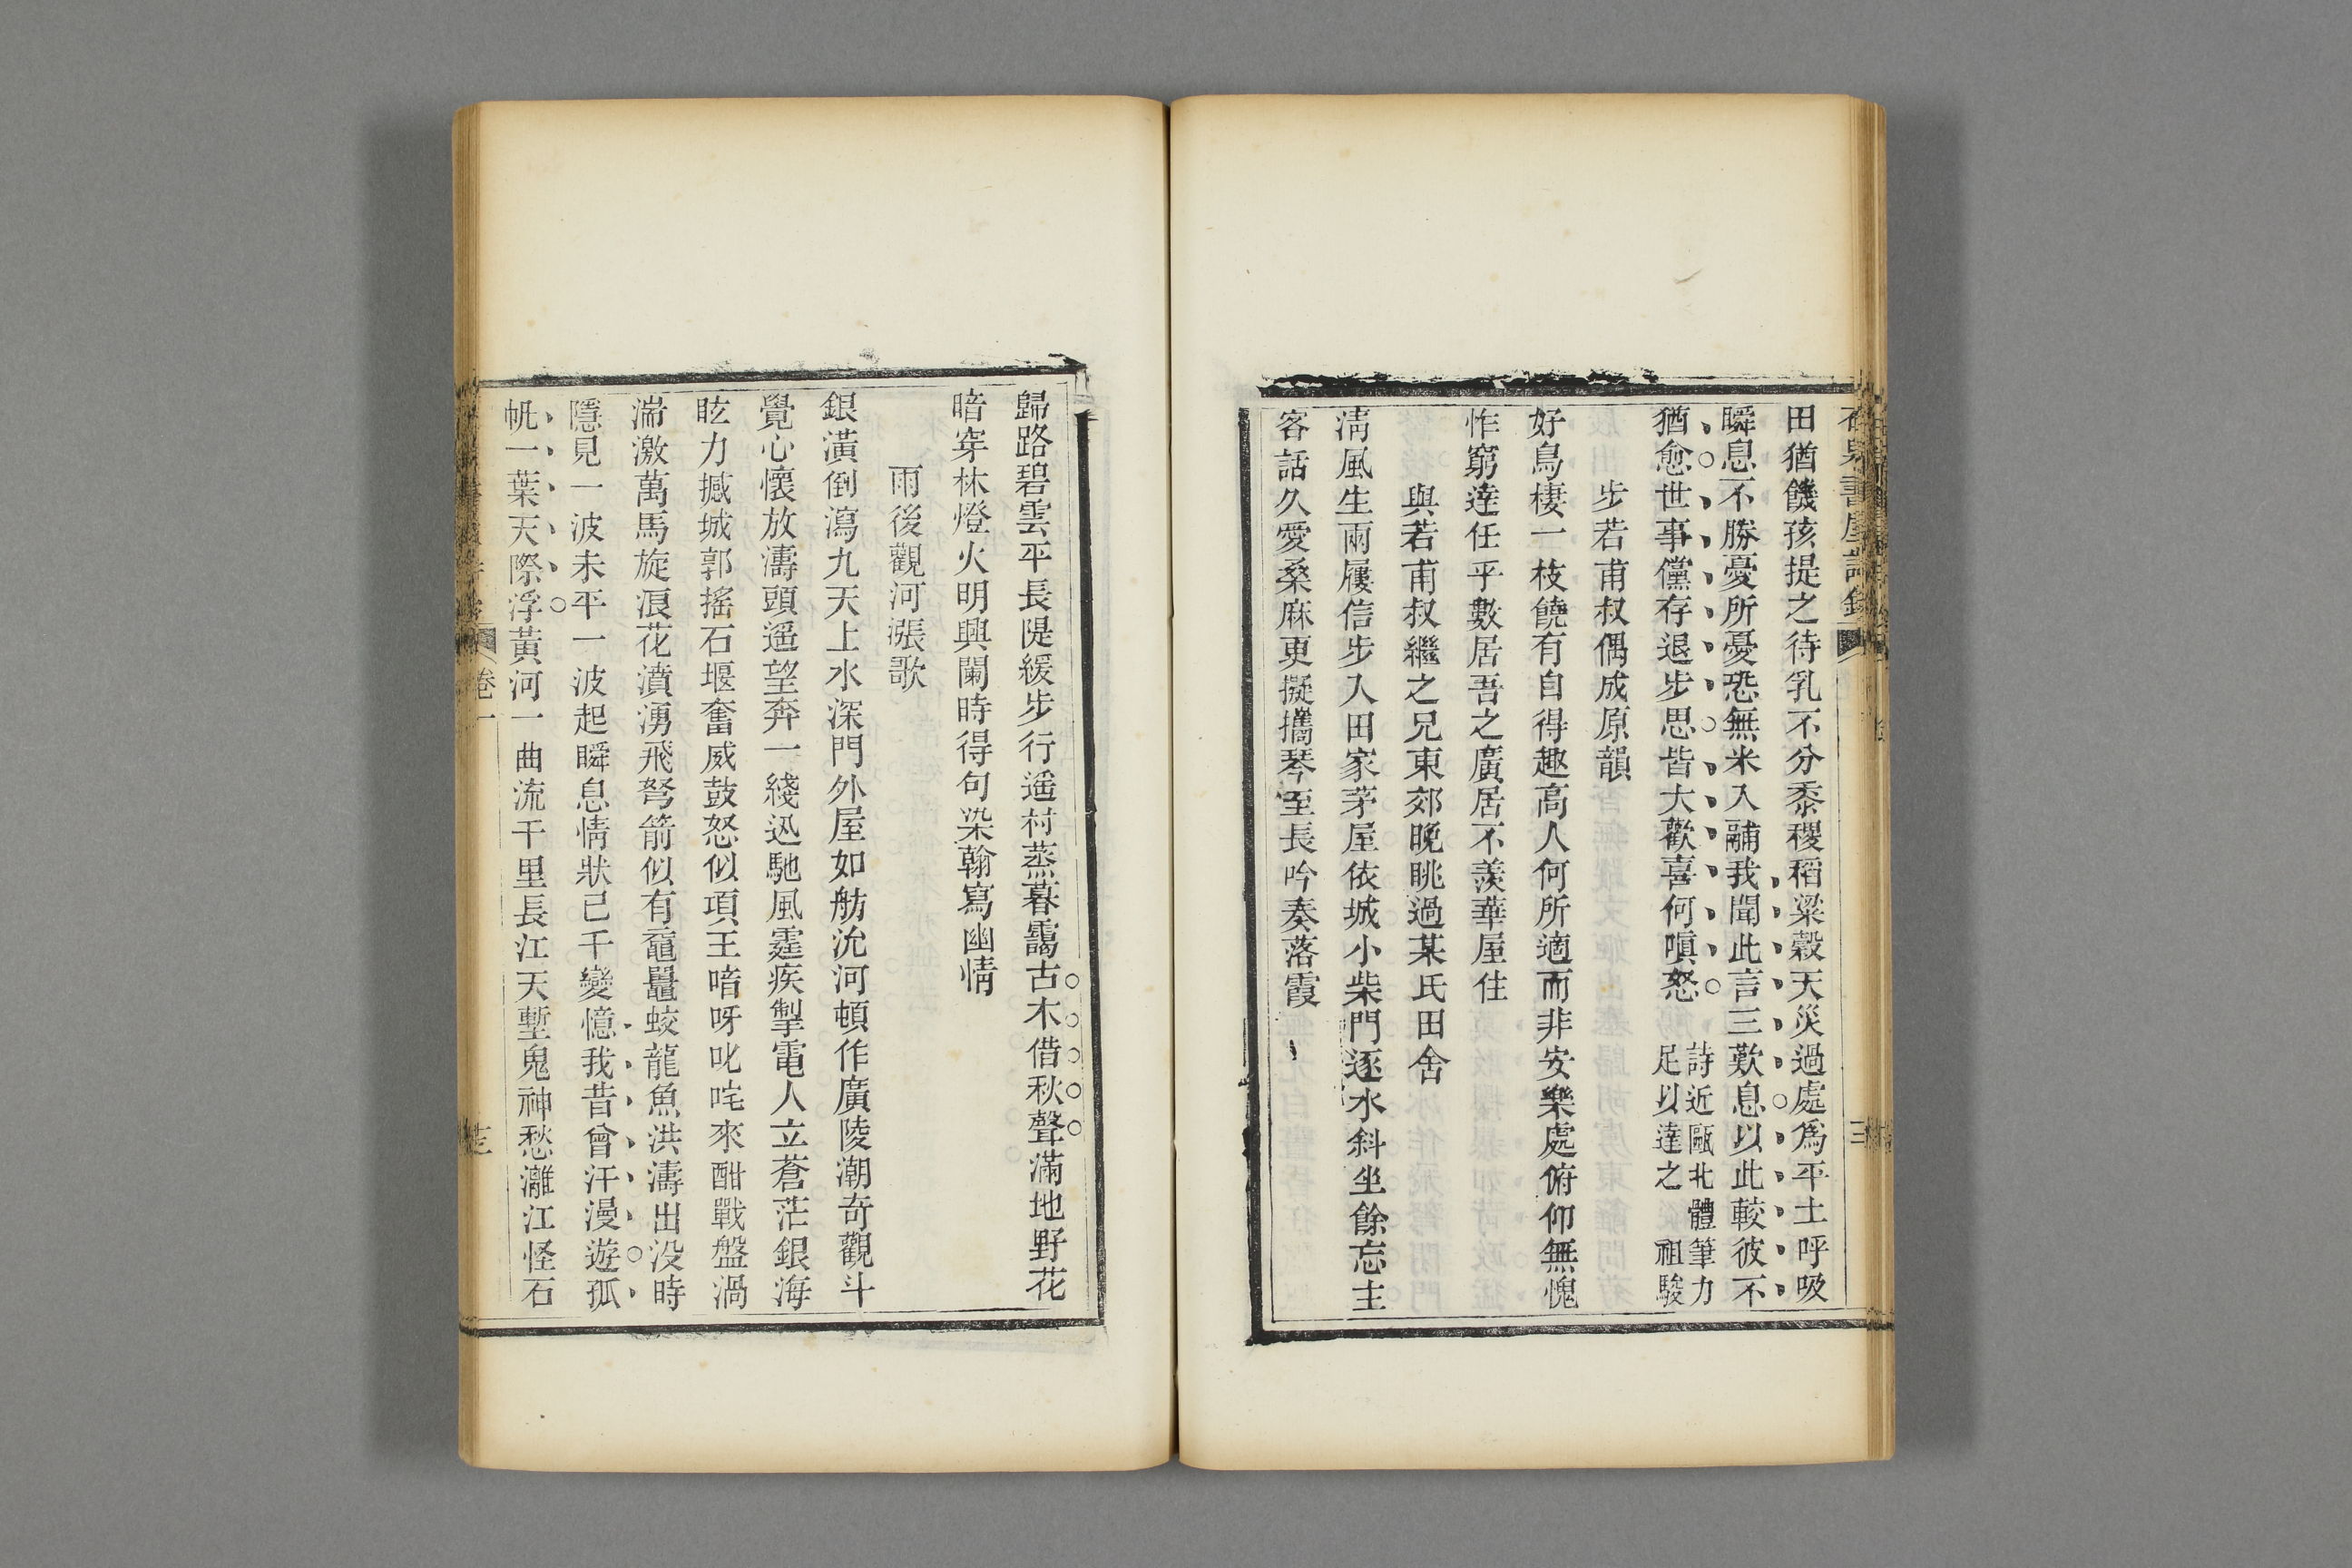 田猶饑孩提之待乳不分黍稷稻粱穀天災過處為平土呼吸
瞬息不勝憂所憂恐無米入鬴我聞此言三歎息以此較彼不
猶愈世事儻存退步思皆大歡喜何嗔怒
詩近甌北體筆力
足以達之 從祖駿
步若甫叔偶成原韻
好鳥棲一枝饒有自得趣高人何所適而非安樂處俯仰無愧
怍窮達任乎數居吾之廣居不羨華屋住
與若甫叔繼之兄東郊晚眺過某氏田舍
淸風生雨屨信步入田家茅屋依城小柴門逐水斜坐餘忘主
客話久愛桑麻更擬攜琴至長吟奏落霞
歸路碧雲平長隄緩步行遥村蒸暮靄古木借秋聲滿地野花
暗穿林燈火明興闌時得句染翰寫幽情
雨後觀河漲歌
銀潢倒瀉九天上水深門外屋如舫沇河頓作廣陵潮奇觀斗
覺心懷放濤頭遥望奔一綫迅馳風霆疾掣電人立蒼茫銀海
眩力撼城郭搖石堰奮威鼓怒似項王喑呀叱咤來酣戰盤渦
湍激萬馬旋浪花濆湧飛弩箭似有黿鼉蛟龍魚洪濤出没時
隱見一波未平一波起瞬息情狀已千變憶我昔曾汗漫遊孤
帆一葉天際浮黃河一曲流千里長江天塹鬼神愁灕江怪石
卷一